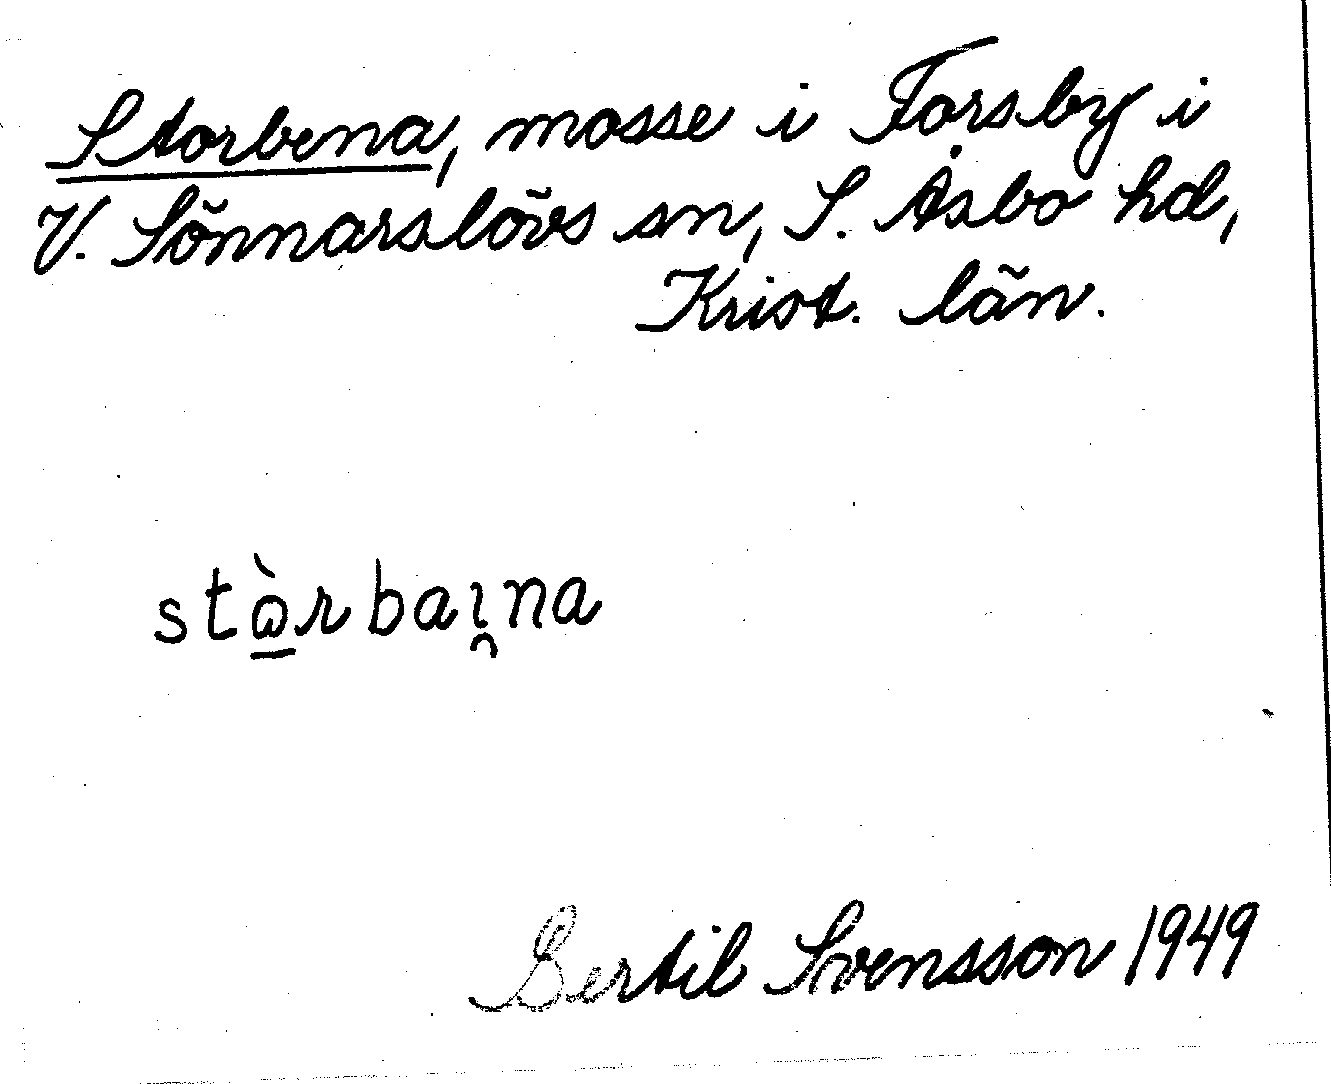 Storbena, mosse i Forsby i
V. Sönnarslövs sn, S. Åsbo hd,
Krist. län.
stꞷ̠̀rbaı̯na
Bertil Svensson 1949